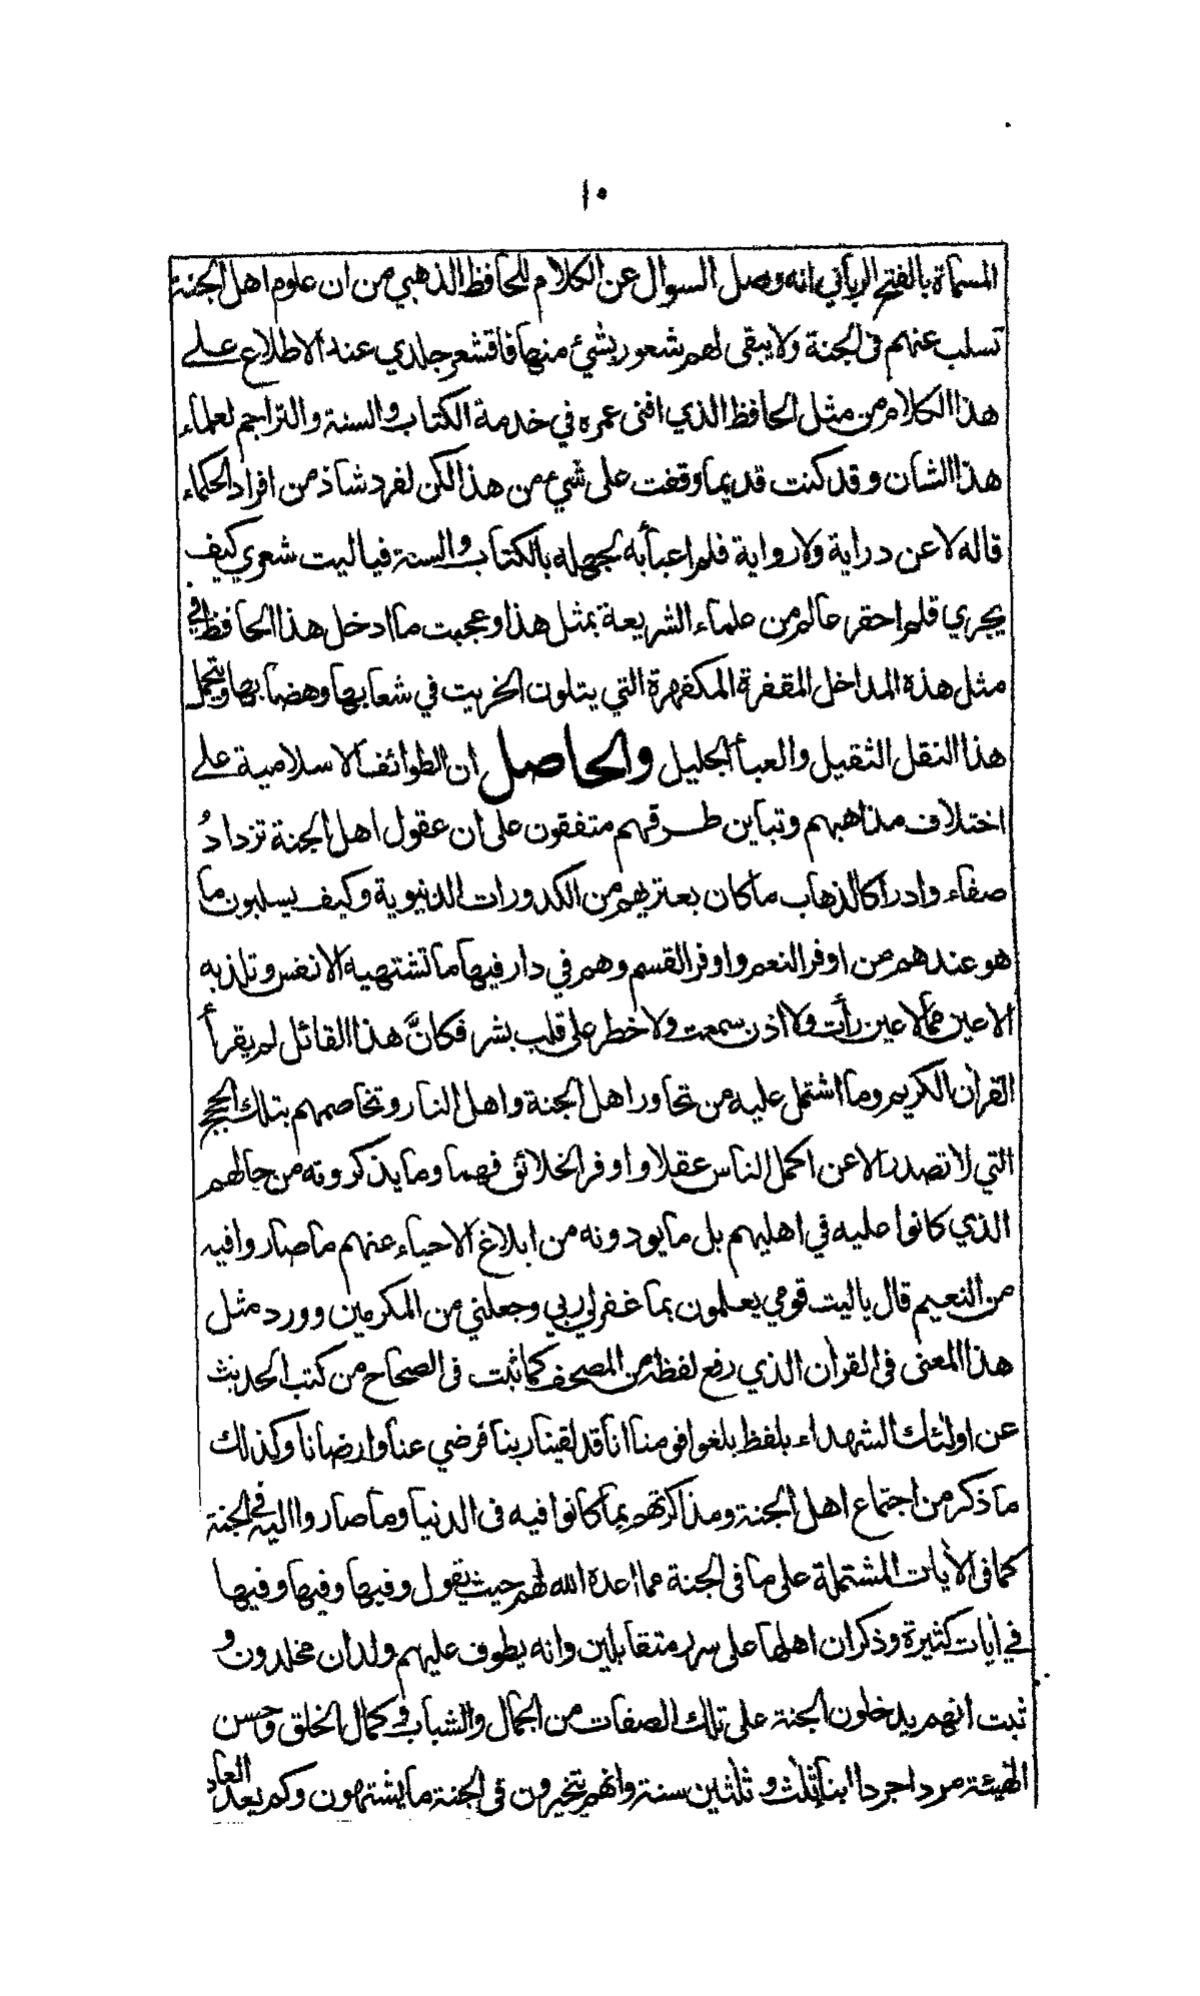 ١٠
المسماة بالفتح الرباني انه وصل السوال عن الكلام للحافظ الذهبي من ان علوم اهل الجنة
تسلب عنهم فى الجنة ولا يبقى لهم شعور بشئ منها فاقشعر جلدي عند الاطلاع على
هذا الكلام من مثل الحافظ الذي افنى عمره في خدمة الكتاب والسنة والتراجم لعلماء
هذا الشان وقد كنت قديما وقفت على شيء من هذا لكن لفرد شاذ من افراد الحكماء
قاله لا عن دراية ولا رواية فلم اعبأ به لجهله بالكتاب والسنة فيا ليت شعري كيف
يجري قلم احقر عالم من علماء الشريعة بمثل هذا وعجبت ما ادخل هذا الحافظ في
مثل هذه المداخل المقفرة المكفهرة التي يتلون الخريت في شعابها وهضابها ويتحمل
هذا النقل الثقيل والعبأ الجليل والحاصل ان الطوائف الاسلامية على
اختلاف مذاهبهم وتباين طرقهم متفقون على ان عقول اهل الجنة تزدادُ
صفاء وادراكا لذهاب ما كان يعتريهم من الكدورات الدنيوية وكيف يسلبون ما
هو عندهم من اوفر النعم واوفر القسم وهم في دار فيها ما تشتهيه الانفس وتلذ به
الاعين مما لا عين رأت ولا اذن سمعت ولا خطر على قلب بشر فكانَّ هذا القائل لم يقرأ
القرأن الكريم وما اشتمل عليه من تحاور اهل الجنة واهل النار وتخاصمهم بتلك الحجج
التي لا تصدر الا عن اكمل الناس عقلا واوفر الخلائق فهما وما يذكرونه من حالهم
الذي كانوا عليه في اهليهم بل ما يودونه من ابلاغ الاحياء عنهم ما صاروا فيه
من النعيم قال ياليت قومي يعلمون بما غفر لي ربي وجعلني من المكرمين وورد مثل
هذا المعنى فى القرأن الذي رفع لفظه من المصحف كما ثبت فى الصحاح من كتب الحديث
عن اولئك الشهداء بلفظ بلغوا قومنا انا قد لقينا ربنا فرضي عنا وارضانا وكذلك
ما ذكر من اجتماع اهل الجنة ومذاكرتهم بما كانوا فيه فى الدنيا وما صاروا اليه فى الجنة
كما فى الأيات المشتملة على ما فى الجنة مما اعده الله لهم حيث يقول وفيها وفيها وفيها
في أيات كثيرة وذكر ان اهلها على سرر متقابلين وانه يطوف عليهم ولدان مخلدون و
ثبت انهم يدخلون الجنة على تلك الصفات من الجمال والشباب وكمال الخلق وحسن
الهيئة مردا جردا ابناء ثلث وثلثين سنة وانهم يتخيرون فى الجنة ما يشتهون وكم يعد العاد